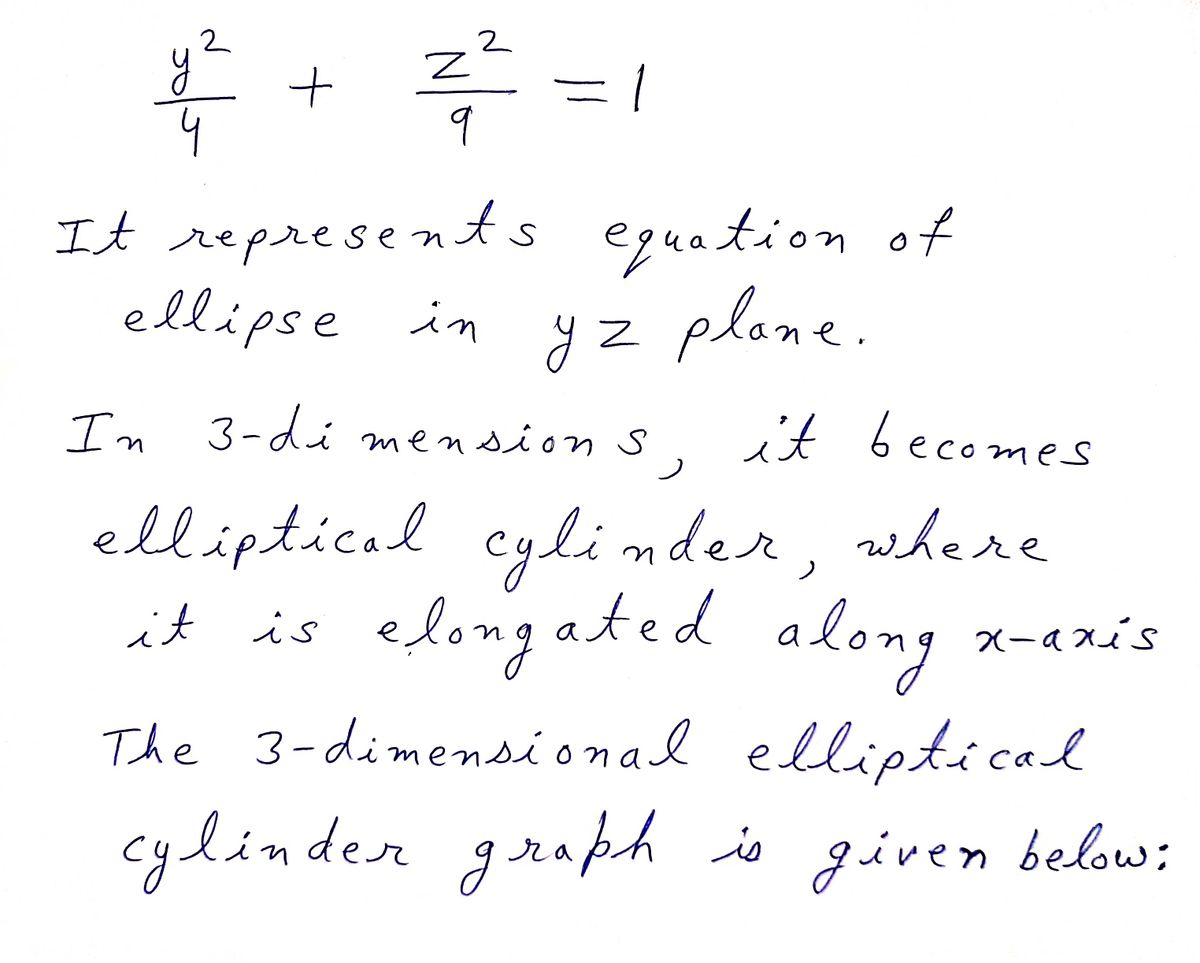 y²/4 + z²/9 = 1
It represents equation of
ellipse in yz plane.
In 3-dimensions, it becomes
elliptical cylinder, where
it is elongated along x-axis
The 3-dimensional elliptical
cylinder graph is given below: